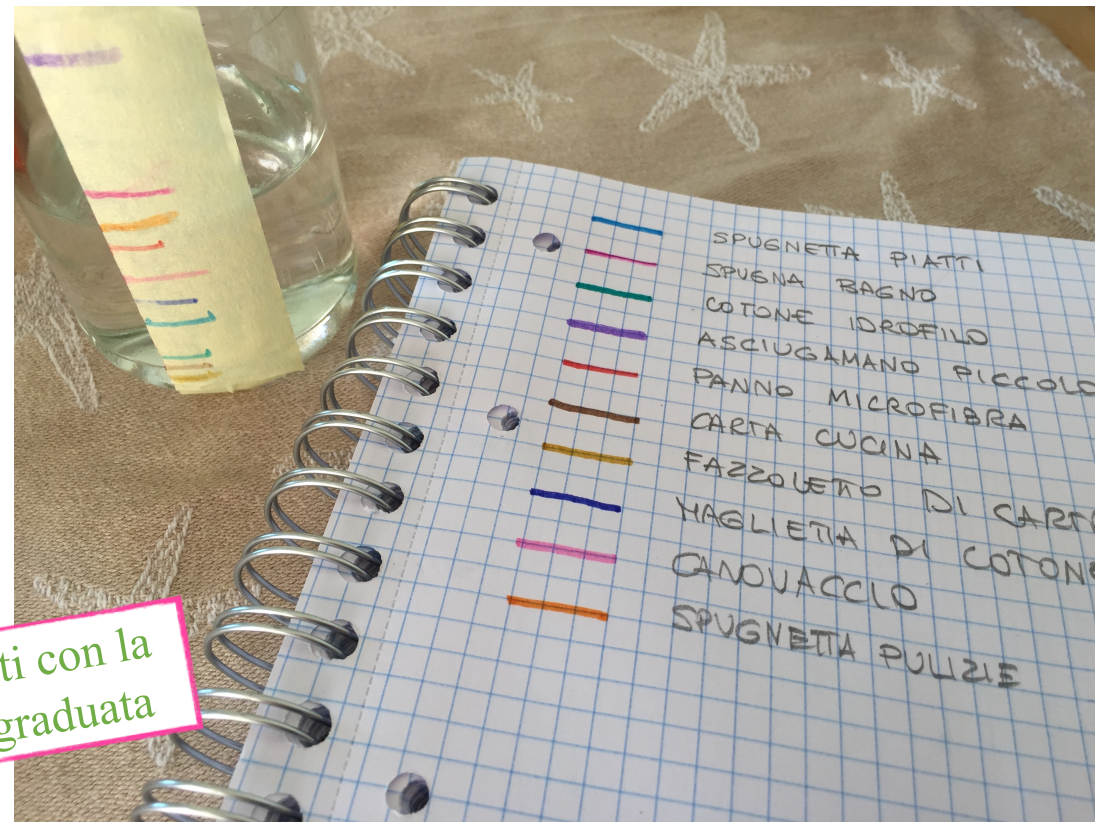 SPUGNETTA PIATTI
SPUGNA BAGNO
COTONE IDROFILO
ASCIUGAMANO PICCOLO
PANNO MICROFIBRA
CARTA CUCINA
FAZZOLETTO DI CARTA
MAGLIETTA DI COTONE
CANOVACCIO
SPUGNETTA PULIZIE
ti con la
graduata